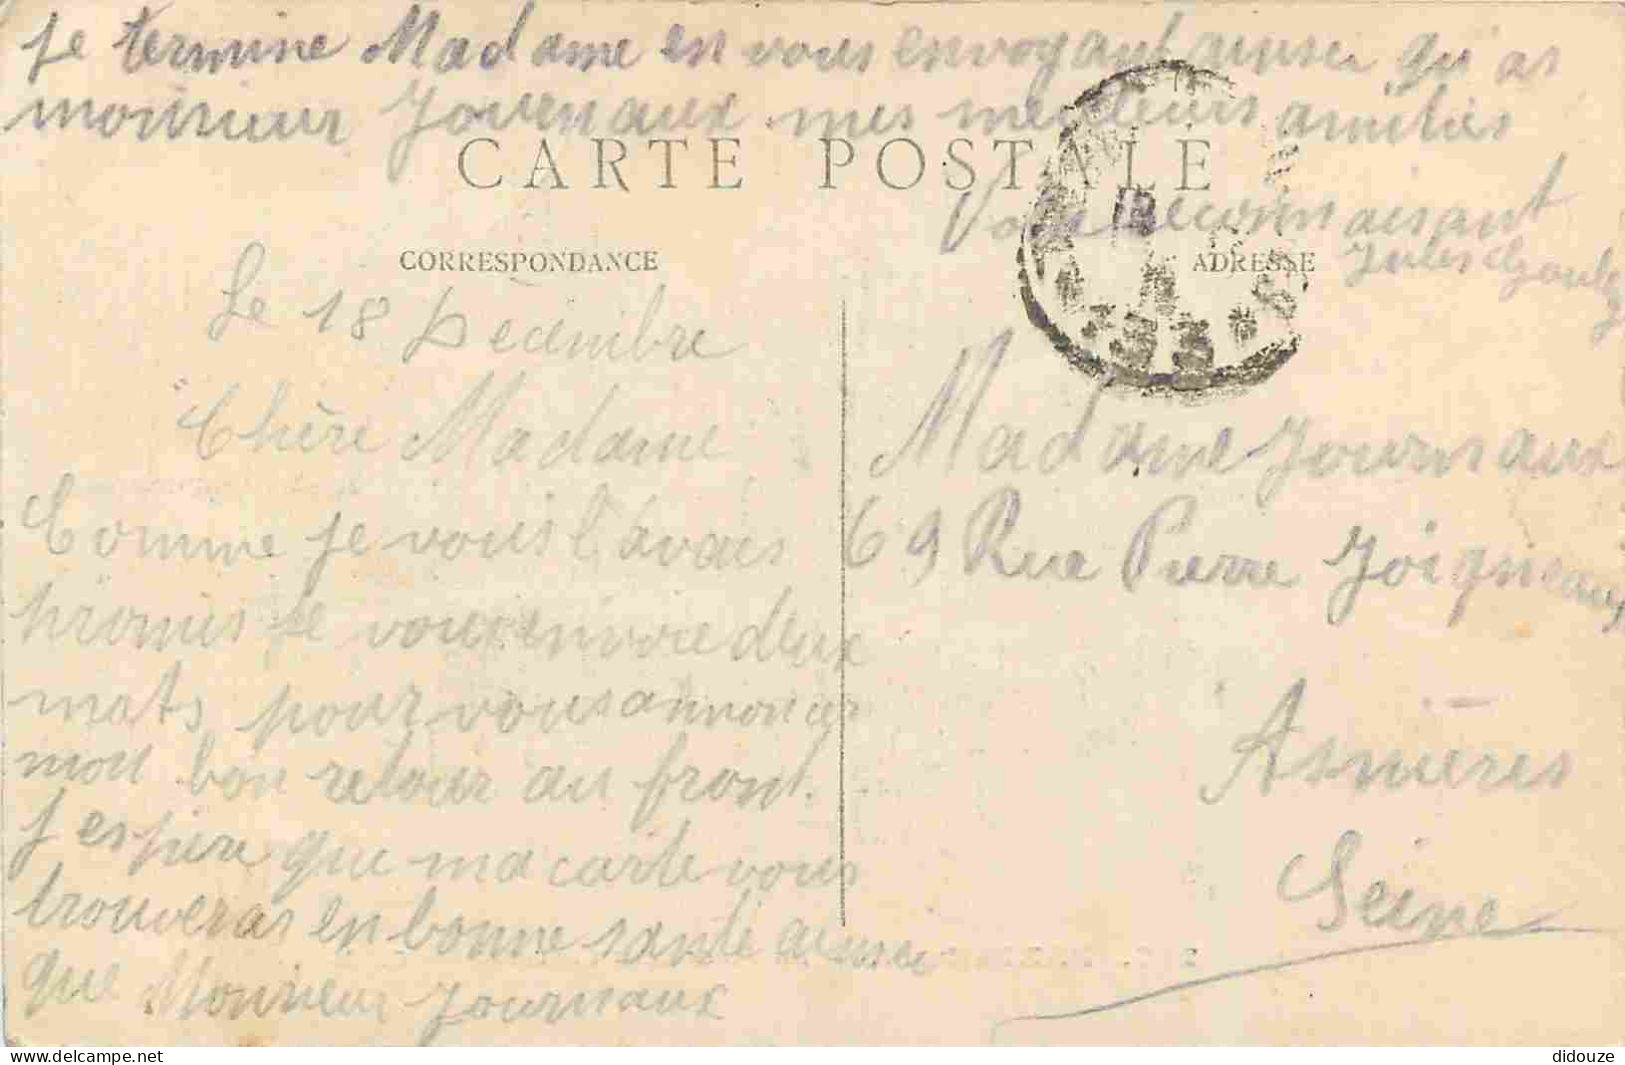 je termine Madame en vous envoyant ainsi qu'as
monsieur Journaux mes meilleurs amitiés
CARTE POSTALE
Votre Reconnaisant
Jules
CORRESPONDANCE
ADRESSE
Le 18 Decembre
Chère Madame
Comme je vous l'avais
promis je vous envoie deux
mots pour vous annoncer
mon bon retour au front.
J espere que ma carte vous
trouveras en bonne santé ainsi
que Monsieur Journaux
Madame Journaux
69 Rue Pierre Joigneaux
Asnieres
Seine
delcampe.net
didouze